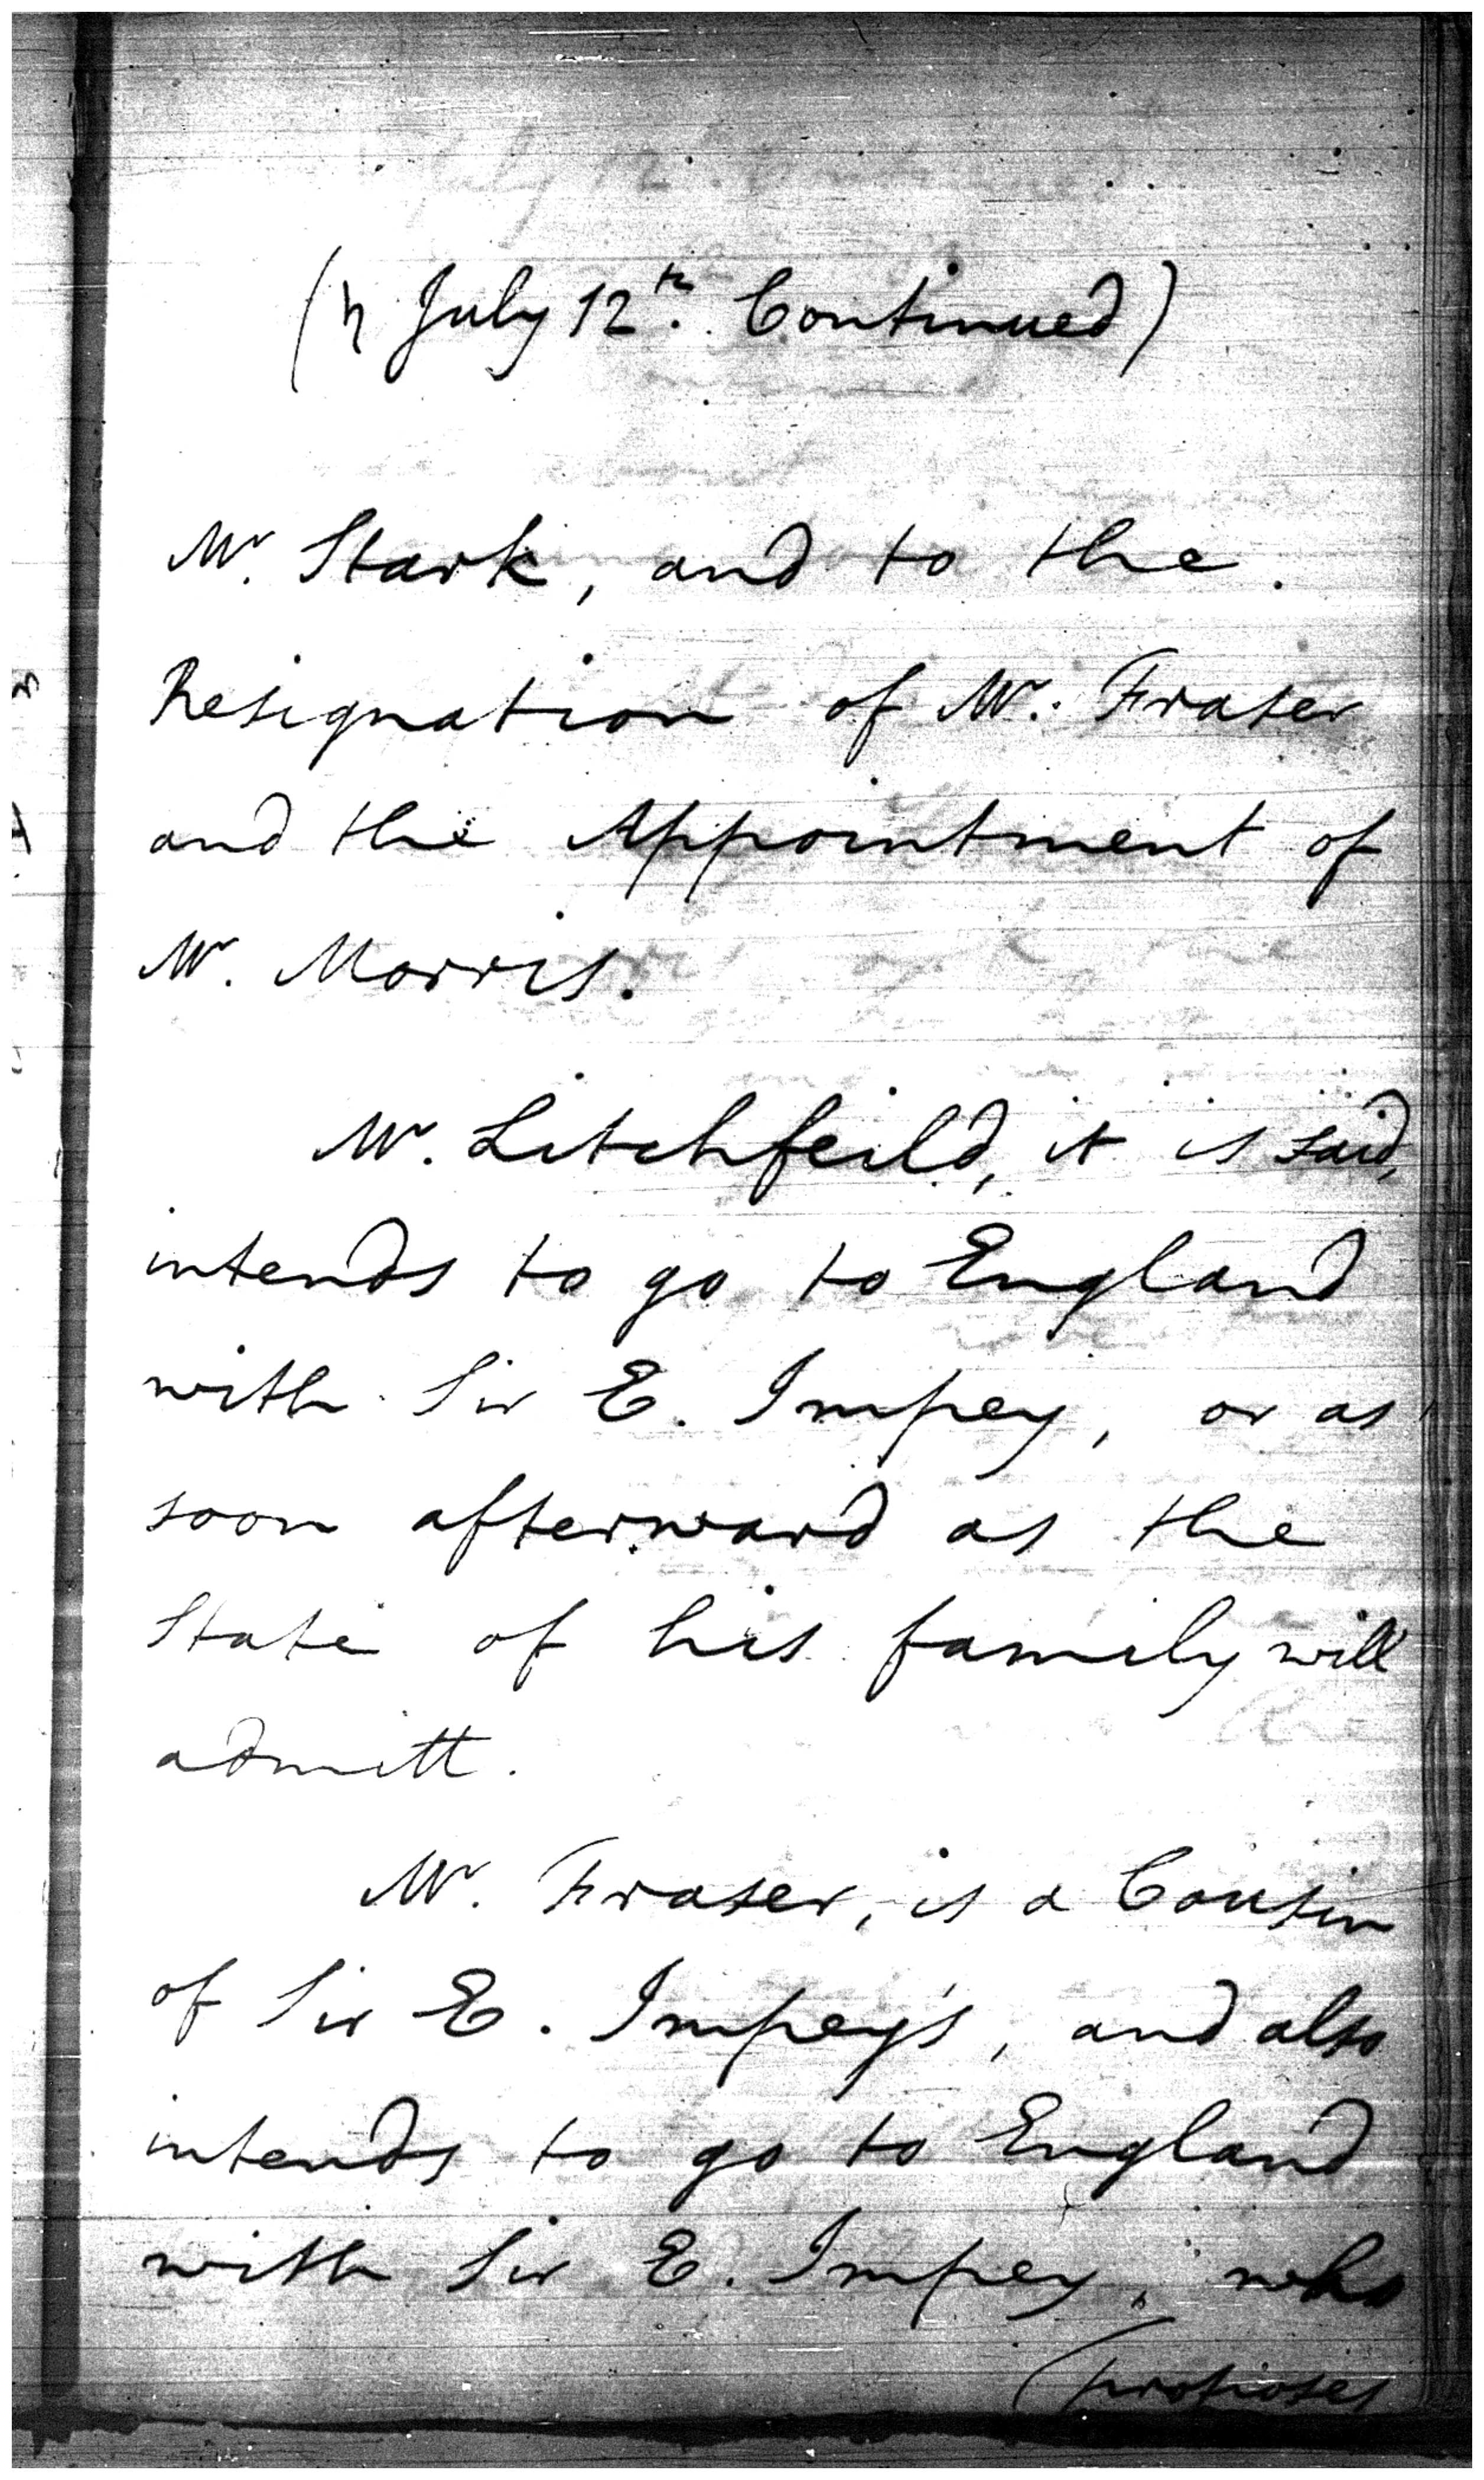 (♄ July 12th. Continued)
Mr. Stark, and to the
Resignation of Mr. Fraser
and the Appointment of
Mr. Morris.
Mr. Litchfeild, it is said,
intends to go to England
with Sir E. Impey, or as
soon afterward as the
State of his family will
admitt.
Mr. Fraser, is a Cousin
of Sir E. Impey's, and also
intends to go to England
with Sir E. Impey, who
(proposes